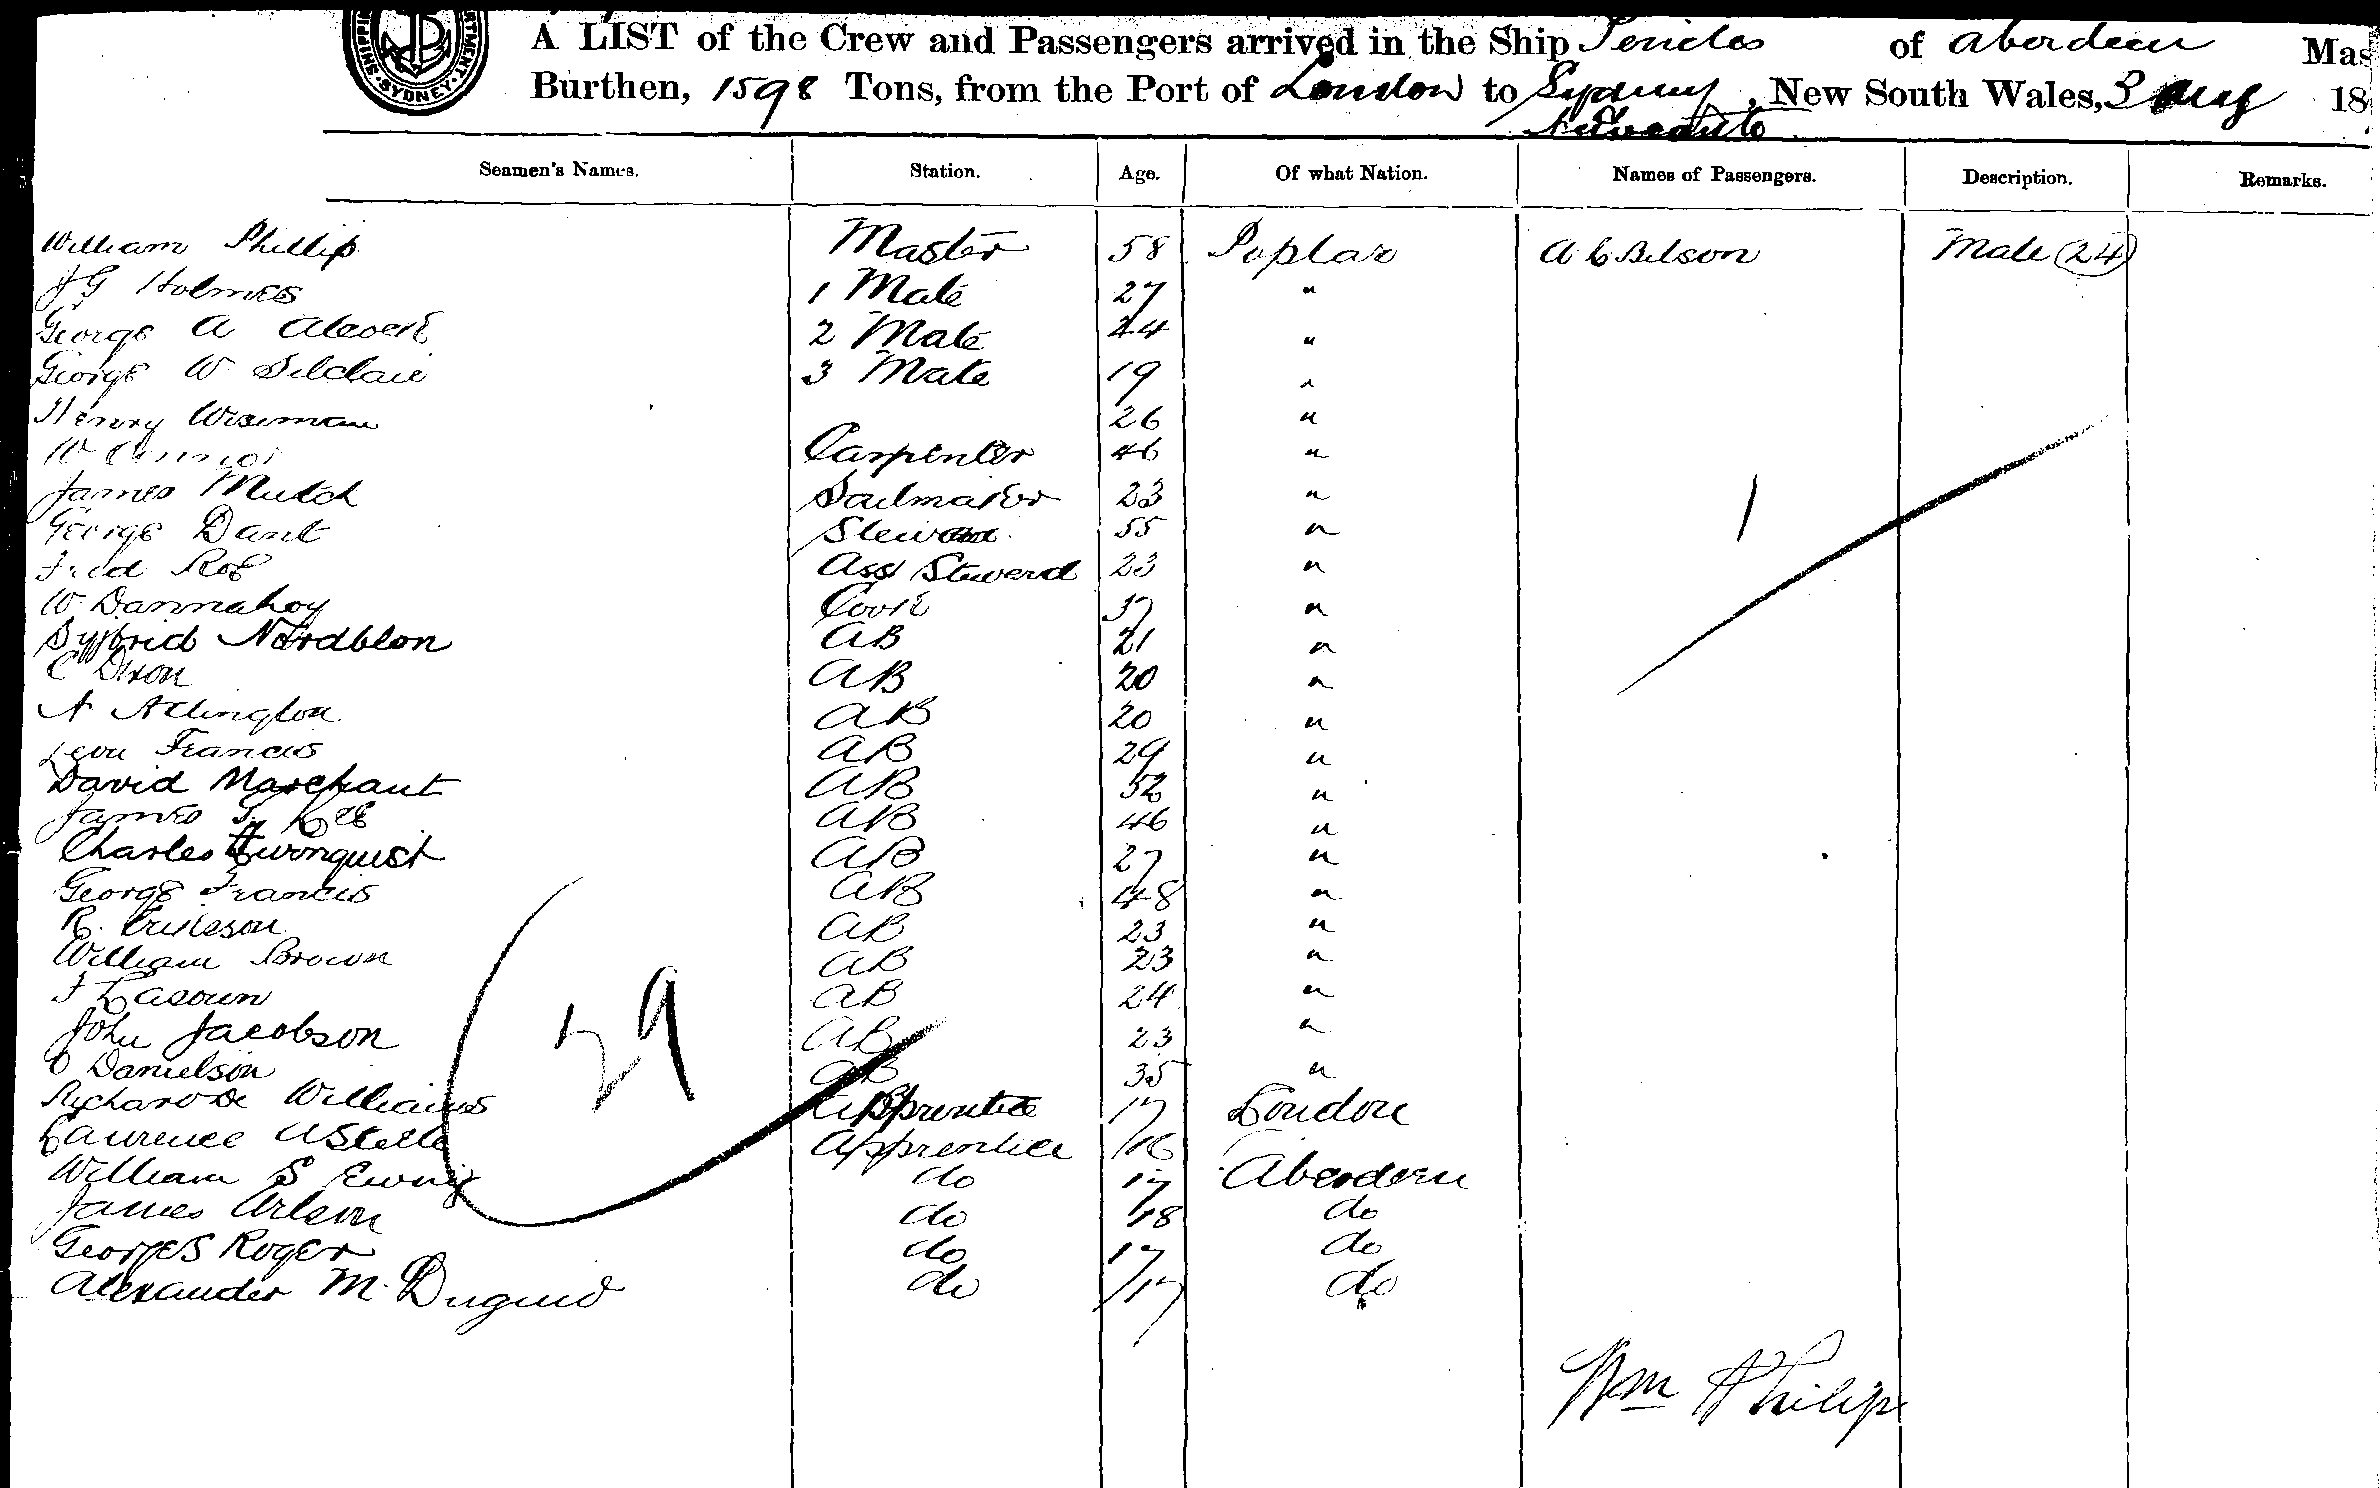 SYDNEY
A LIST of the Crew and Passengers arrived in the Ship Pericles of Aberdeen Mas
Burthen, 1598 Tons, from the Port of London to Sydney, New South Wales, 3 Aug 18
Newcastle
Seamen's Names. Station. Age. Of what Nation. Names of Passengers. Description. Remarks.
William Phillip Master 58 Poplar A C Belson Male (24)
J G Holmes 1 Mate 27 "
George A 2 Mate 44 "
George W 3 Mate 19 "
Henry Wiseman 26 "
W Carpenter 46 "
James Mutch Sailmaker 23 "
George Dant Steward 55 "
Fred Roe Ass Steward 23 "
W Dannahoy Cook 37 "
Nordblon AB 21 "
C Dixon AB 20 "
A Adlington AB 20 "
Levu Francis AB 29 "
David Marchant AB 52 "
James Lee AB 46 "
Charles AB 27 "
George Francis AB 48 "
R. Ericsson AB 23 "
William Brown AB 23 "
AB 24 "
John Jacobson AB 23 "
O Danielson AB 35 "
Williams Apprentice 17 London
Laurence Astelle Apprentice 16
William S Ewing do 17 Aberdeen
James do 18 do
George S Roger do 17 do
Alexander M. Duguid do 17 do
29
1
Wm Philip